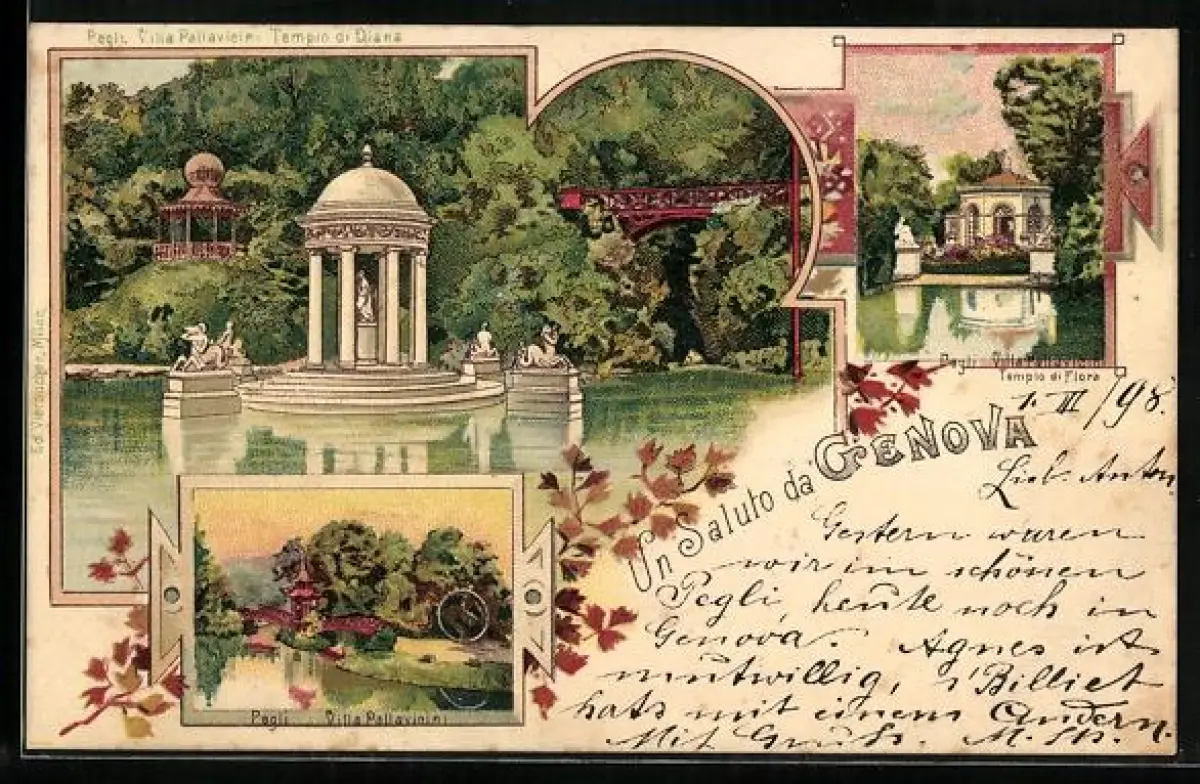 Pegli. Villa Pallavicini Tempio di Diana
Ed. Milan
Pegli Villa
Tempio di Flora
Un Saluto da GENOVA
1. III /98.
Lieb. Anton,
Gestern waren
wir im schönen
Pegli, heute noch in
Genova. Agnes ist
mutwillig, s'Billiet
hats mit einem Andern.
Mit Gruß. M.
Pegli Villa Pallavicini